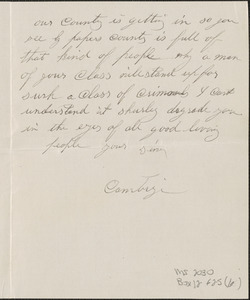 our County is gettin in so you
see by papers County is full of
that kind of people why a man
of your Class will stand up for
such a Class of Crimon I Cant
understand it shurley degrade you
in the eyes of all good loving
people your sin
MS 2030
Box 12 625 (6)